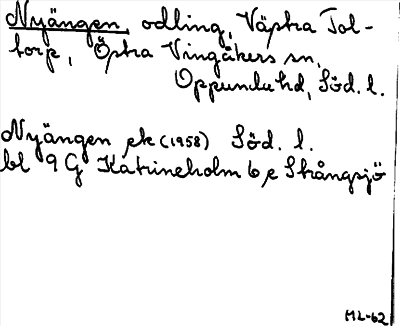 Nyängen, odling, Västra Tol-
torp, Östra Vingåkers sn,
Oppunda hd, Söd. l.
Nyängen ek (1958) Söd. l.
bl 9 G Katrineholm 6 e Strångsjö
ML-62